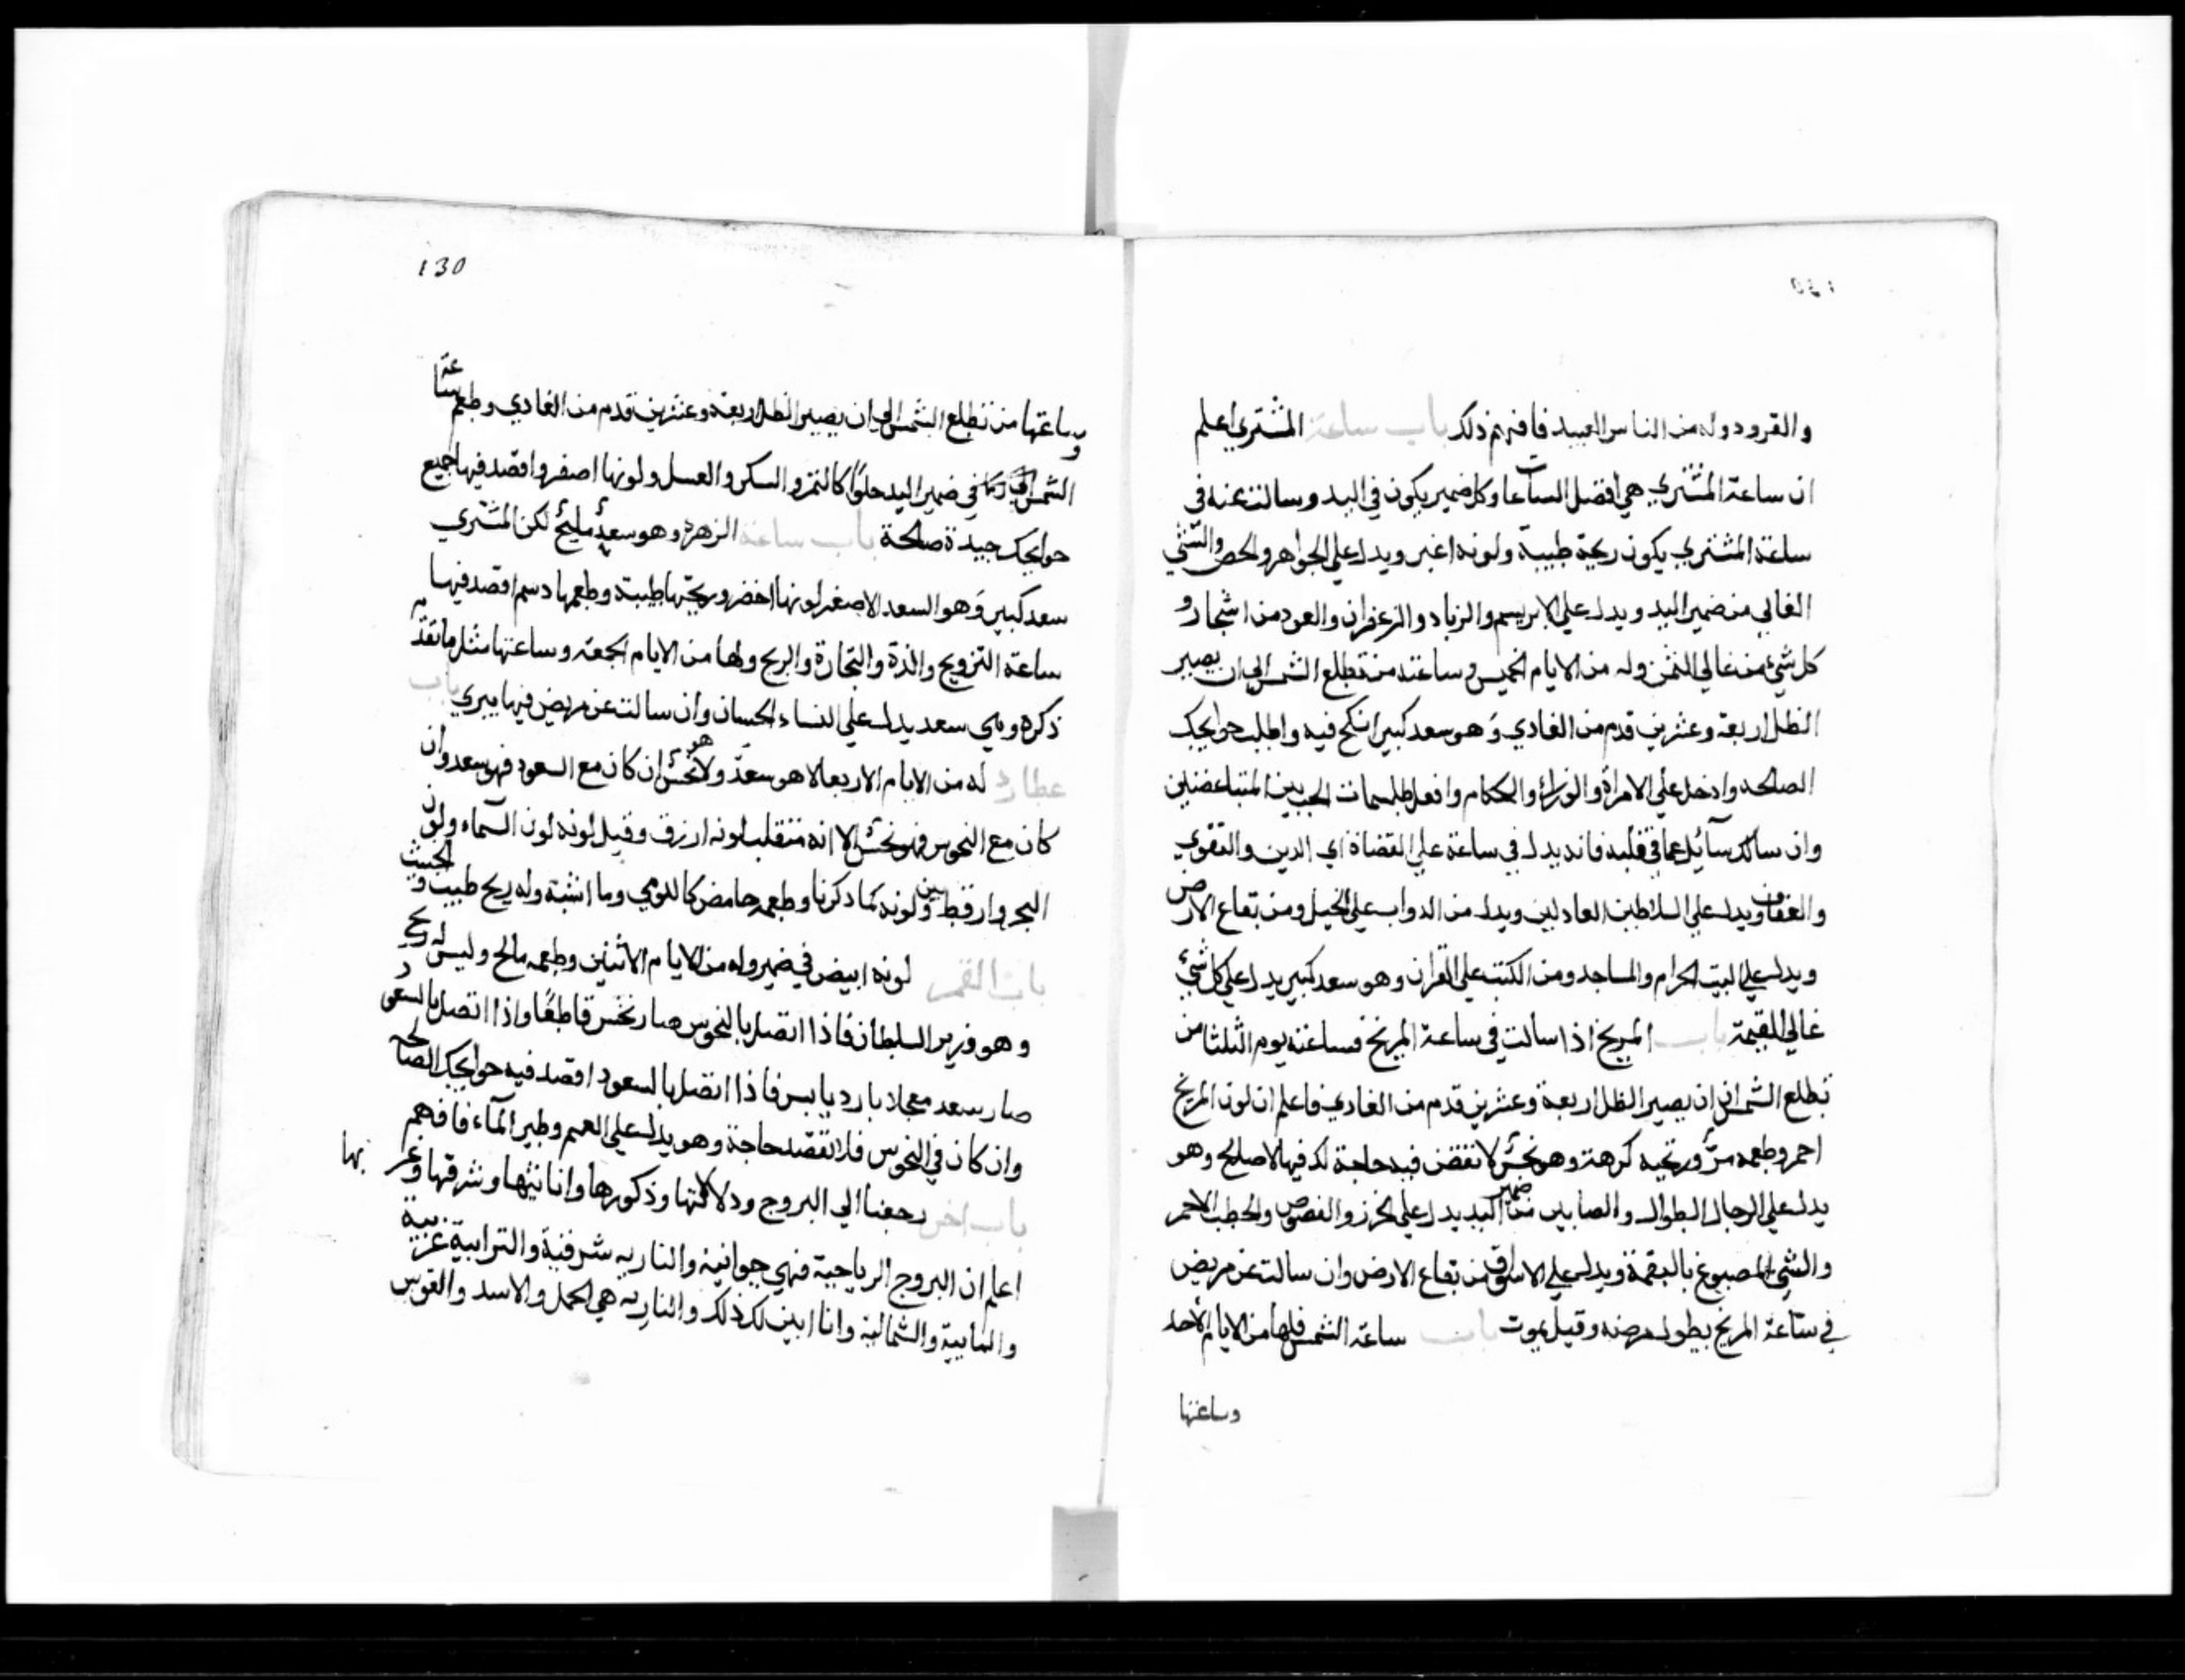 والقرود وله من الناس العبيد فافهم ذلك باب ساعة المشتري اعلم
ان ساعة المشتري هي افضل الساعات وكل ضمير يكون في اليد وسالت عنه في
ساعة المشتري يكون ريحة طيبة ولونه اغبر ويدل علي الجواهر والحص والشئ
الغالي من ضمير اليد ويدل علي الابريسم والزباد والزعفران والعود من اشجار و
كل شئ من غالي الثمن وله من الايام الخميس وساعته من تطلع الشمس الي ان يصير
الظل اربعة وعشرين قدم من الغادي وهو سعد كبير انكح فيه واطلب حوايجك
الصالحه وادخل علي الامراة والوزراء والحكام وافعل طلسمات الحب بين المتباغضين
وان سالك سآئل عما في قلبه فانه يدل في ساعة علي القضاة اي الدين والتقوي
والعفاف ويدل علي السلاطين العادلين ويدل من الدواب علي الخيل ومن بقاع الارض
ويدل علي البيت الحرام والمساجد ومن الكتب علي القران وهو سعد كبير يدل علي كل شئ
غالي للقيمة باب المريخ اذا سالت في ساعة المريخ فساعته يوم الثلثا من
تطلع الشمس الي ان يصير الظل اربعة وعشرين قدم من الغادي فاعلم ان لون المريخ
احمر وطعمه مر وريحيه كرهة وهو نحس لا تقض فيه حاجة لك فيها لاصلح وهو
يدل علي الرجال الطوال والصابين من ضمير اليد يدل علي الخرز والفصوص والحطب الاحمر
والشئ المصبوغ بالبقمة ويدل علي الاسواق من بقاع الارض وان سالت عن مريض
في ساعة المريخ يطول مرضه وقيل يموت باب ساعة الشمس فلها من الايام الاحد
وساعتها
130
وساعتها من تطلع الشمس الي ان يصير الظل اربعة وعشرين قدم من الغادي وطعم ساعة
الشمس في ضمير اليد حلوا كالتمر والسكر والعسل ولونها اصفر واقصد فيها جميع
حوايجك جيدة صالحة باب ساعة الزهرة وهو سعد مليح لكن المشتري
سعد كبير وهو السعد الاصغر لونها اخضر وريحتها طيبة وطعمها دسم اقصد فيها
ساعة التزويج والذة والتجارة والربح ولها من الايام الجمعة وساعتها مثل ما تقدم
ذكره وهي سعد يدل علي النساء الحسان وان سالت عن مريض فيها يبري باب
عطارد له من الايام الاربعا لا هو سعد ولا هو نحس ان كان مع السعود فهو سعد وان
كان مع النحوس فهو نحس الا انه متقلب لونه ازرق وقيل لونه لون السماء ولون
البحر وارقط بين ولونه كما ذكرنا وطعمه حامض كالدومي وما اشبة وله ريح طيب والخبيث
باب القمر لونه ابيض في ضمير وله من الايام الاثنين وطعمه مالح وليس له ريح
وهو وزير السلطان فاذا اتصل بالنحوس صار نحس قاطعًا واذا اتصل بالسعود
صار سعد معجلا بارد يابس فاذا اتصل بالسعود اقصد فيه حوايجك الصالحه
وان كان في النحوس فلا تقصد حاجة وهو يدل علي العيم وطير المآء فافهم
باب اخر رجعنا الي البروج ودلالاتها وذكورها واناثيها وشرقها وغربها
اعلم ان البروج الرياحية فهي جوانية والناريه شرقية والترابية غربية
والمايية والشمالية وانا ابين لك ذلك والناريه هي الحمل والاسد والقوس